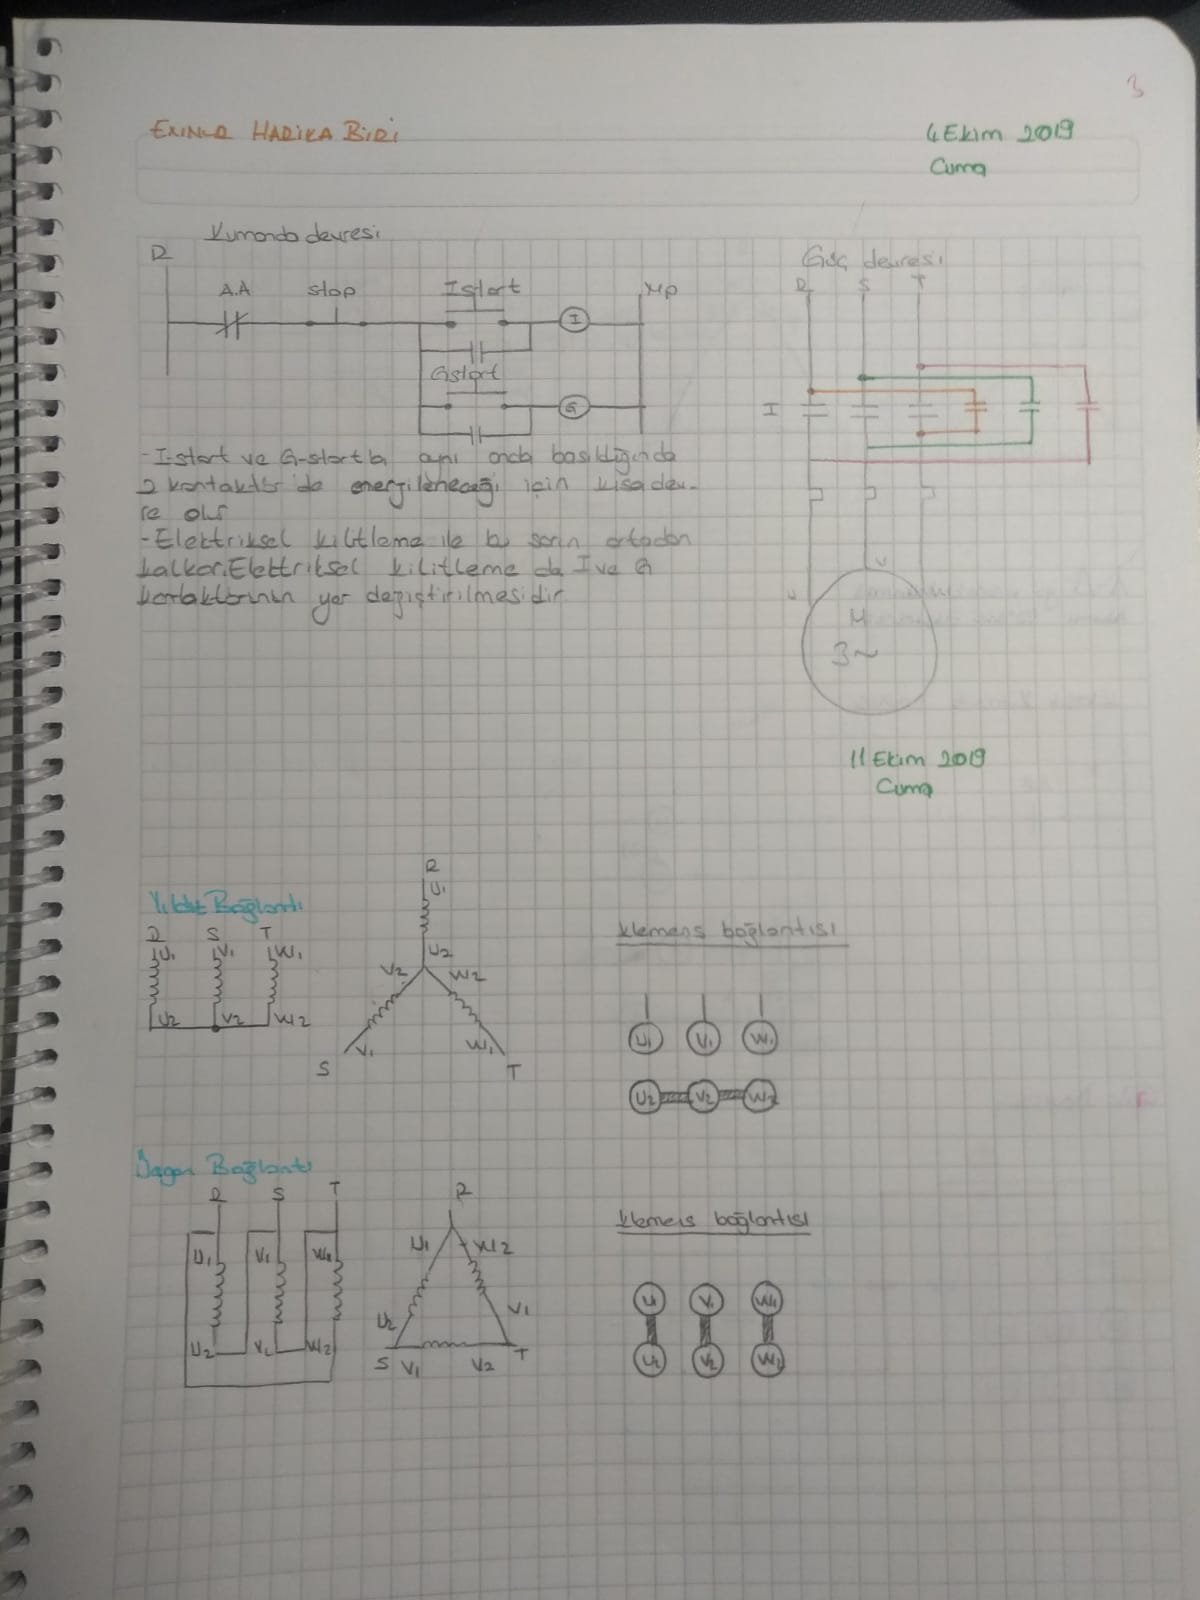 3
4 Ekim 2019
Cuma
HARİKA BİRİ
Kumanda devresi
R
A.A stop I start Mp
I
G start
G
Güç devresi
R S T
I
- I-start ve G-start'a aynı anda basıldığında
2 kontaktör de enerjileneceği için kısa dev-
re olur
- Elektriksel kilitleme ile bu sorun ortadan
kalkar. Elektriksel kilitleme de I ve G
kontaklarının yer değiştirilmesidir.
U V
M
3~
11 Ekim 2019
Cuma
Yıldız Bağlantı
R S T
U1 V1 W1
U2 V2 W2
R
U1
U2
V2 W2
V1 W1
S T
klemens bağlantısı
U1 V1 W1
U2 V2 W2
Üçgen Bağlantı
R S T
U1 V1
U2 V2 W2
R
U1 W2
U2 V1
S V1 V2 T
klemens bağlantısı
U1 V1 W1
U2 V2 W2